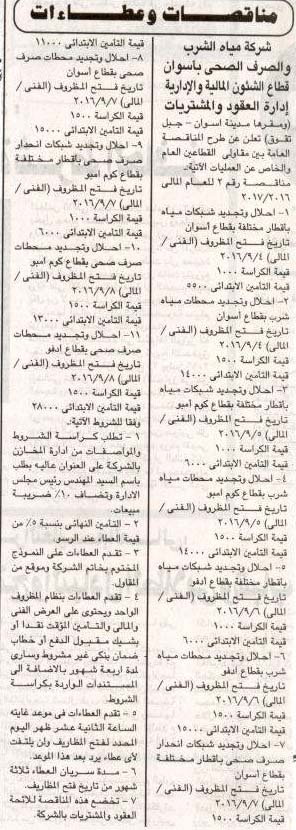 مناقصات وعطاءات
شركة مياه الشرب
والصرف الصحى بأسوان
قطاع الشئون المالية والإدارية
إدارة العقود والمشتريات
(ومقرها مدينة اسوان - جبل
تقوق) تعلن عن طرح المناقصة
العامة بين مقاولى القطاعين العام
والخاص عن العمليات الآتية.
مناقصة رقم ٢ للعام المالى
٢٠١٧/٢٠١٦
١- احلال وتجديد شبكات مياه
باقطار مختلفة بقطاع أسوان
تاريخ فتح المظروف (الفنى/
المالى) ٢٠١٦/٩/٤
قيمة الكراسة ١٠٠٠
قيمة التامين الابتدائى ٥٥٠٠
٢- احلال وتجديد محطات مياه
شرب بقطاع أسوان
تاريخ فتح المظروف (الفنى/
المالى) ٢٠١٦/٩/٤
قيمة الكراسة ١٥٠٠
قيمة التامين الابتدائى ١٤٠٠٠
٣- احلال وتجديد شبكات مياه
باقطار مختلفة بقطاع كوم امبو
تاريخ فتح المظروف (الفنى/
المالى) ٢٠١٦/٩/٥
قيمة الكراسة ١٠٠٠
قيمة التامين الابتدائى ٦٠٠٠
٤- احلال وتجديد محطات مياه
شرب بقطاع كوم امبو
تاريخ فتح المظروف (الفنى/
المالى) ٢٠١٦/٩/٥
قيمة الكراسة ١٥٠٠
قيمة التامين الابتدائى ١٤٠٠٠
٥- احلال وتجديد شبكات مياه
باقطار مختلفة بقطاع ادفو
تاريخ فتح المظروف (الفنى/
المالى) ٢٠١٦/٩/٦
قيمة الكراسة ١٠٠٠
قيمة التامين الابتدائى ٦٠٠٠
٦- احلال وتجديد محطات مياه
شرب بقطاع أدفو
تاريخ فتح المظروف (الفنى/
المالى) ٢٠١٦/٩/٦
قيمة الكراسة ١٥٠٠
قيمة التامين الابتدائى ١٥٠٠٠
٧- احلال وتجديد شبكات انحدار
صرف صحى باقطار مختلفة
بقطاع أسوان
تاريخ فتح المظروف (الفنى/
المالى) ٢٠١٦/٩/٧
قيمة الكراسة ١٥٠٠
قيمة التامين الابتدائى ١١٠٠٠
٨- احلال وتجديد محطات صرف
صحى بقطاع اسوان
تاريخ فتح المظروف (الفنى/
المالى) ٢٠١٦/٩/٧
قيمة الكراسة ١٥٠٠
قيمة التامين الابتدائى ١٥٠٠٠
٩- احلال وتجديد شبكات انحدار
صرف صحى باقطار مختلفة
بقطاع كوم امبو
تاريخ فتح المظروف (الفنى/
المالى) ٢٠١٦/٩/٧
قيمة الكراسة ١٠٠٠
قيمة التامين الابتدائى ٦٠٠٠
١٠- احلال وتجديد محطات
صرف صحى بقطاع كوم امبو
تاريخ فتح المظروف (الفنى/
المالى) ٢٠١٦/٩/٨
قيمة الكراسة ١٥٠٠
قيمة التامين الابتدائى ١٣٠٠٠
١١- احلال وتجديد محطات
صرف صحى بقطاع أدفو
تاريخ فتح المظروف (الفنى/
المالى) ٢٠١٦/٩/٨
قيمة الكراسة ١٥٠٠
قيمة التامين الابتدائى ٢٨٠٠٠
وفقا للشروط الآتية:
١- تطلب كراسة الشروط
والمواصفات من ادارة المخازن
بالشركة على العنوان عاليه بطلب
باسم السيد المهندس رئيس مجلس
الادارة وتضاف ١٠٪ ضريبة
مبيعات.
٢- التامين النهائى بنسبة ٥٪ من
قيمة العطاء عند الرسو
٣- تقدم العطاءات على النموذج
المختوم بخاتم الشركة وموقع من
المقاول.
٤- تقدم العطاءات بنظام المظروف
الواحد ويحتوى على العرض الفنى
والمالى والتامين المؤقت نقدا او
بشيك مقبول الدفع أو خطاب
ضمان بنكى غير مشروط وسارى
لمدة اربعة شهور بالاضافة الى
المستندات الواردة بكراسة
الشروط.
٥- تقدم العطاءات فى موعد غايته
الساعة الثانية عشر ظهر اليوم
المحدد لفتح المظاريف ولن يلتفت
لأى عطاء يرد بعد هذا الموعد.
٦- مدة سريان العطاء ثلاثة
شهور من تاريخ فتح المظاريف.
٧- تخضع هذه المناقصة للائحة
العقود والمشتريات بالشركة.